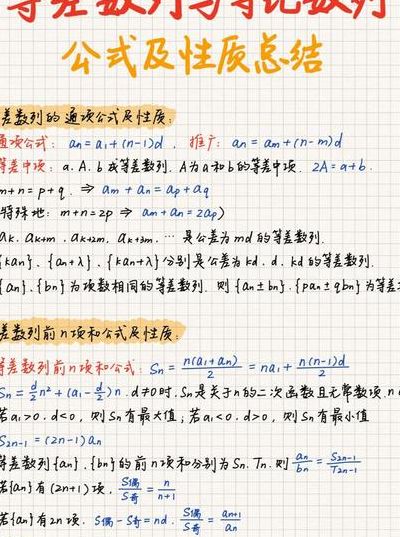 等差数列与等比数列
公式及性质总结
差数列的通项公式及性质:
通项公式: an=a1+(n-1)d, 推广: an=am+(n-m)d
等差中项: a.A.b成等差数列, A为a和b的等差中项. 2A=a+b.
m+n=p+q. ⇒ am+an=ap+aq
特殊地: m+n=2p ⇒ am+an=2ap)
ak, ak+m, ak+2m, ak+3m, … 是公差为md的等差数列.
{kan}, {an+λ}, {kan+λ}分别是公差为kd.d.kd的等差数列.
{an}, {bn}为项数相同的等差数列. 则{an±bn}.{pan±qbn}为等差
差数列前n项和公式及性质:
等差数列前n项和公式: Sn=n(a1+an)/2=na1+n(n-1)d/2
Sn=d/2n²+(a1-d/2)n. d≠0时. Sn是关于n的二次函数且无常数项.
若a1>0.d<0, 则Sn有最大值; 若a1<0.d>0, 则Sn有最小值
S2n-1=(2n-1)an
等差数列{an}.{bn}的前n项和分别为Sn.Tn. 则an/bn=S2n-1/T2n-1
若{an}有(2n+1)项, S偶/S奇=n/n+1
若{an}有2n项. S偶-S奇=nd. S偶/S奇=an+1/an